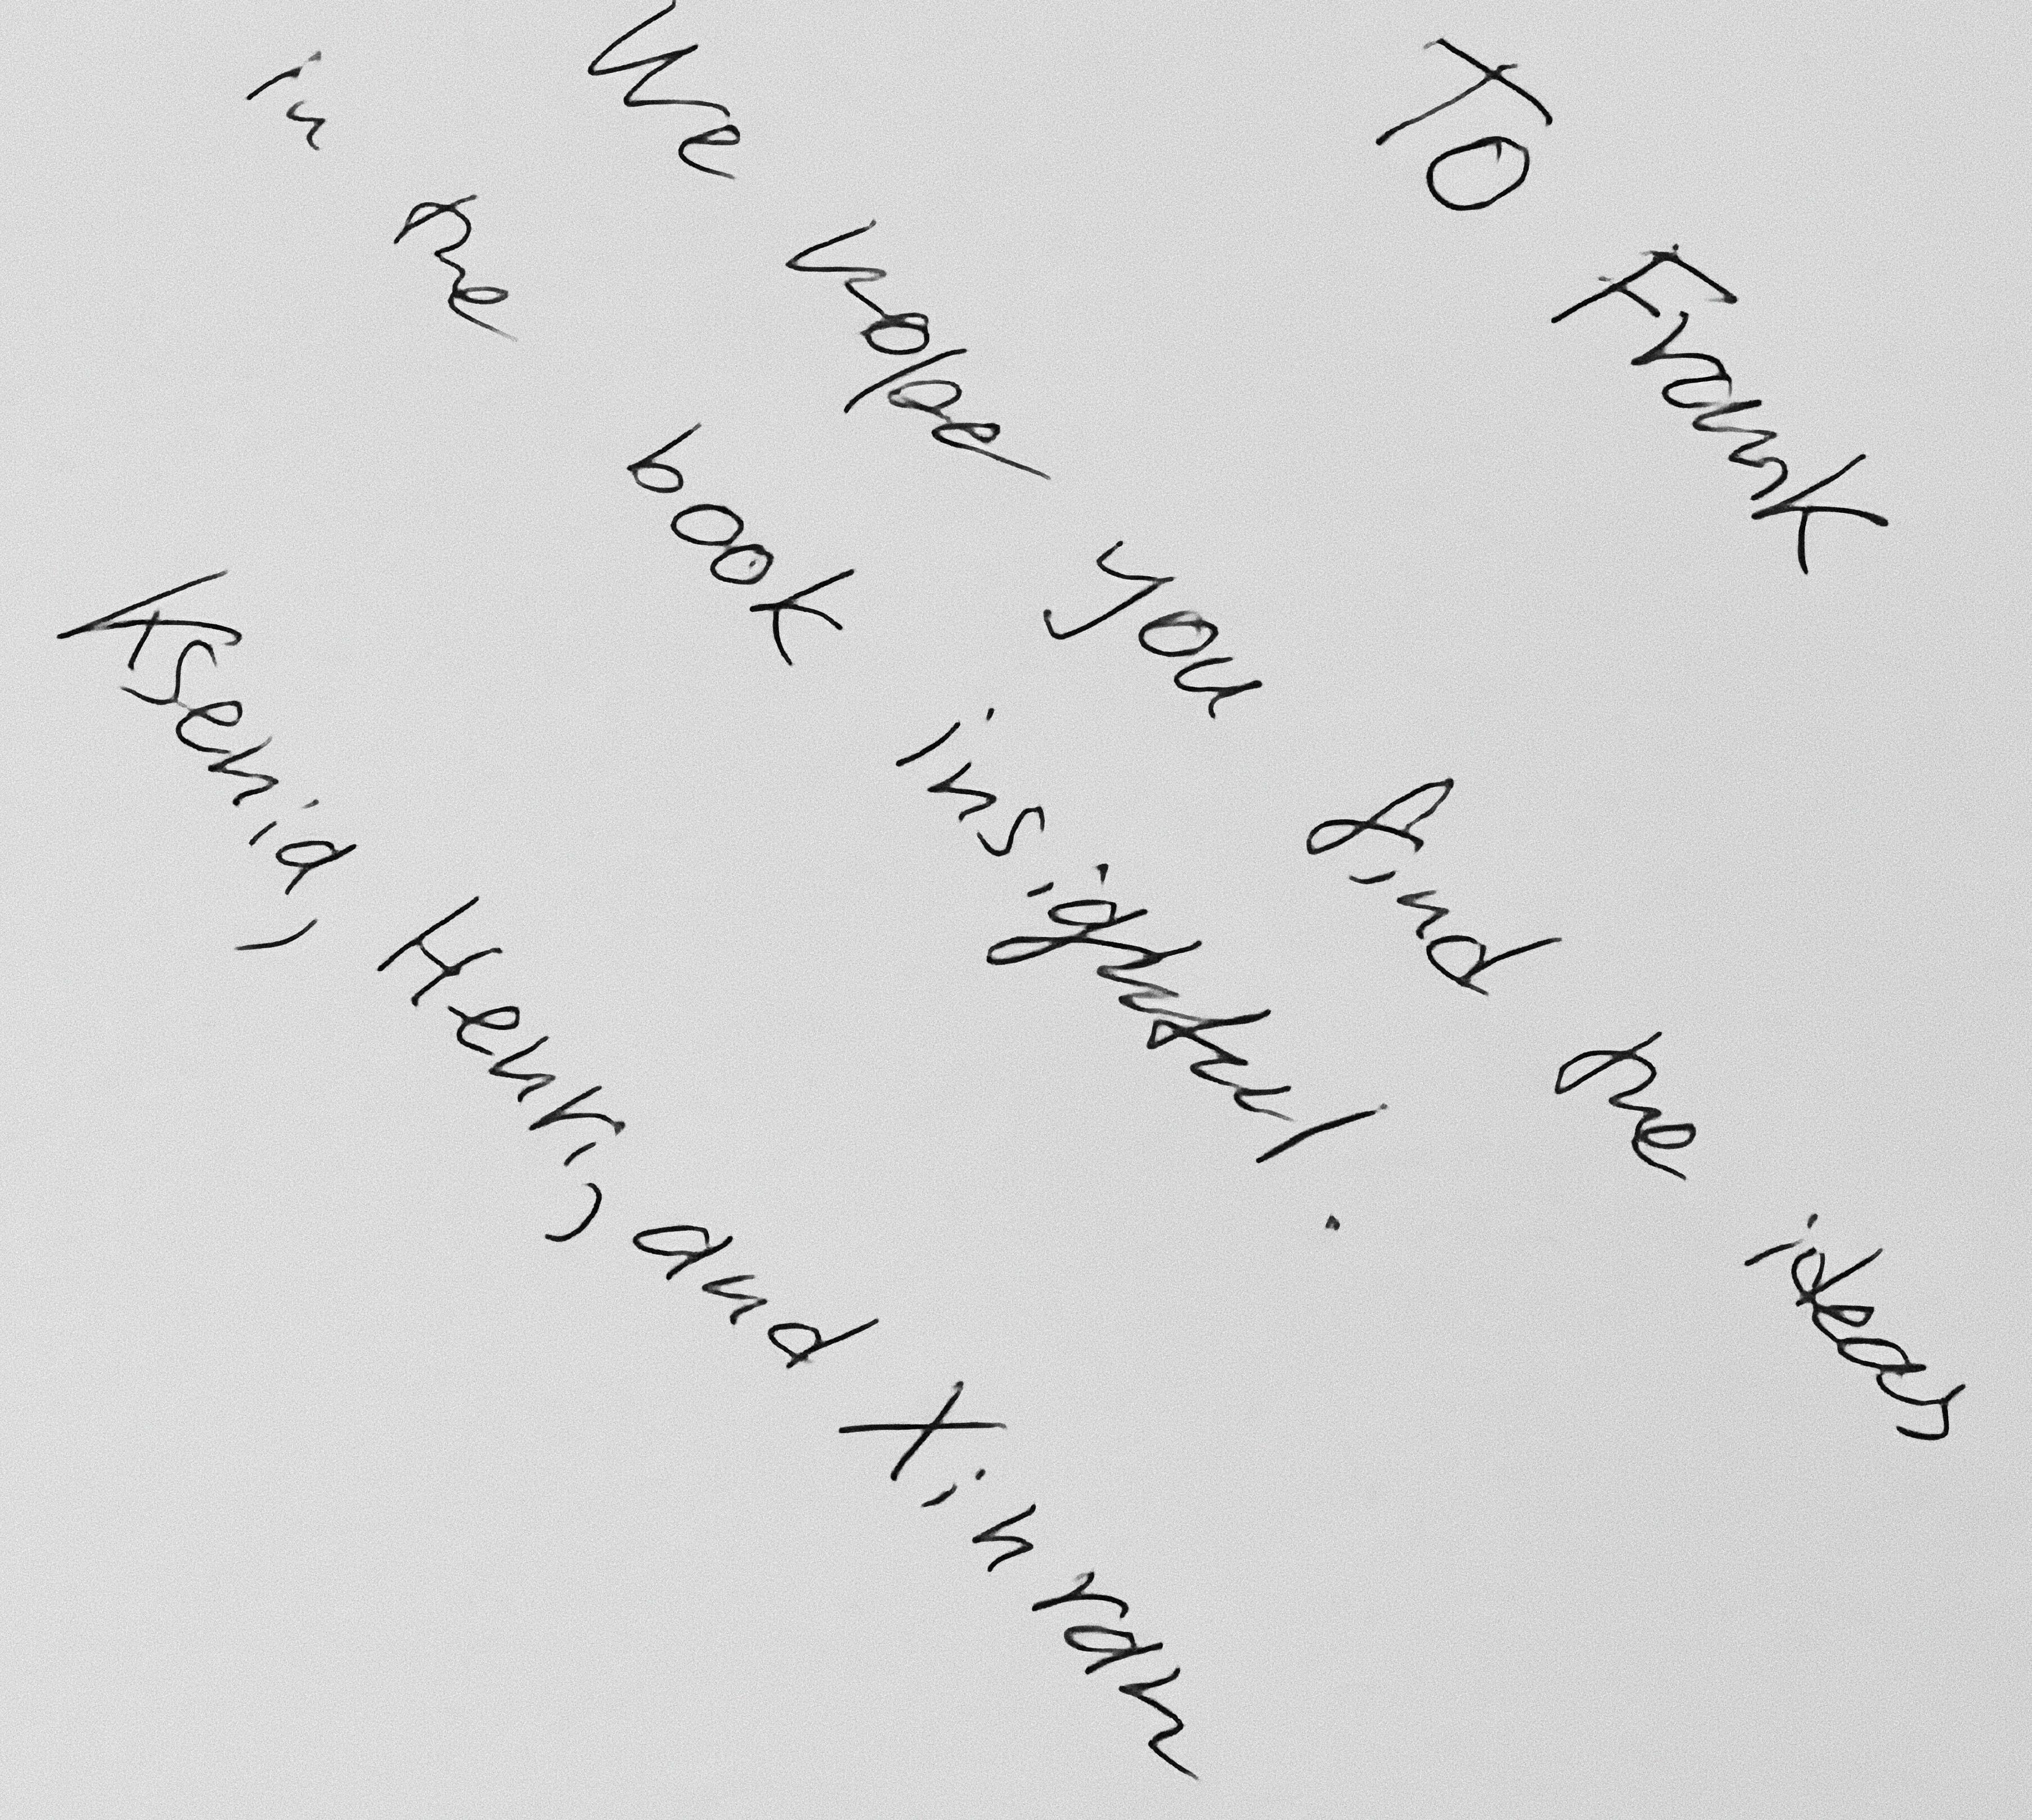 To Frank
We hope you find the ideas
in the book insightful.
Ksenia, Henri, and Xinran